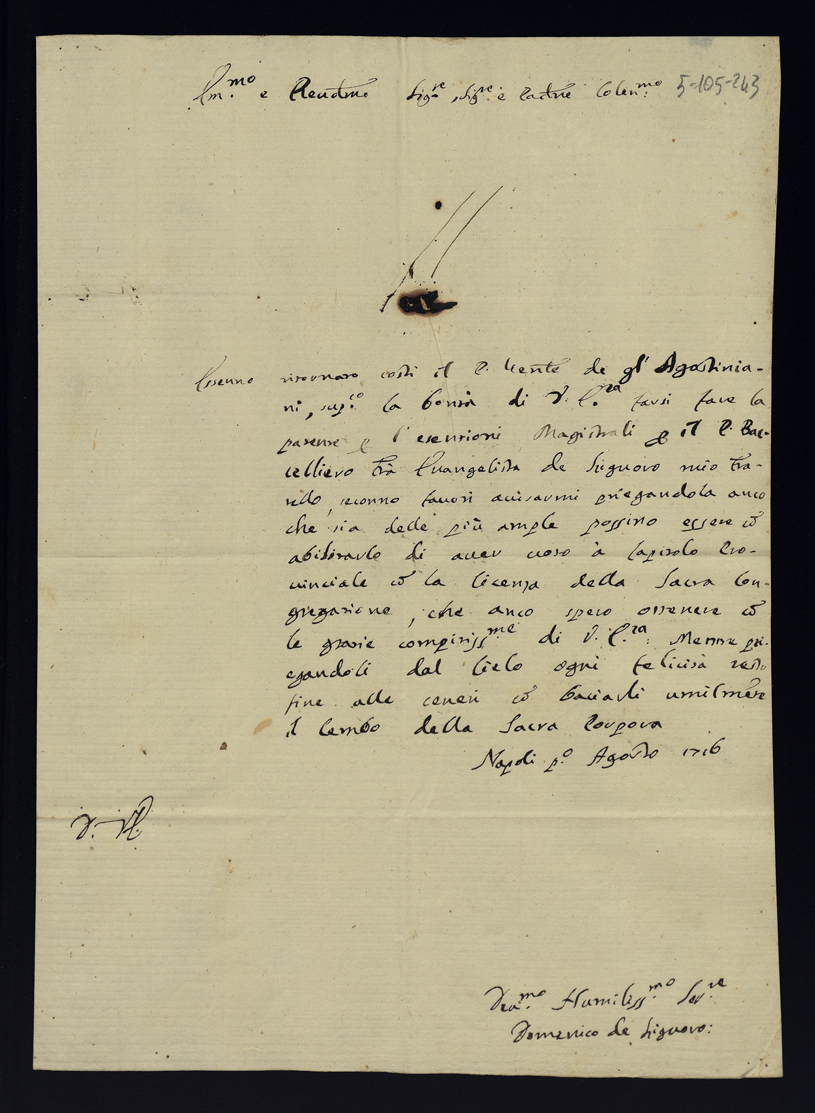 Em.mo e Reudmo Sig.re, Sig.re e Padre Colen.mo 5-105-243
Essendo ritornato costì il P. de gl' Agostinia-
ni, sup.co la bontà di V. E.za farsi fare la
patente p l'esentioni Magistrali p il P. Bac-
celliero frà Euangelista de Siguoro mio fra-
tello, secondo fauorì auisarmi priegandola anco
che sia delle più ample possino essere cō
abilitarlo di auer uoto à Capitolo Pro-
uinciale cō la licenza della Sacra Con-
gregatione, che anco spero ottenere cō
le gratie compitiss.me di V. E.za: Mentre pri-
egandoli dal Cielo ogni felicità resto
fine alle ceneri cō baciarli umilmēte
il lembo della Sacra Porpora
Napoli p.o Agosto 1716
D. V. E.
Deu.mo Humiliss.mo Ser.re
Domenico de Siguoro: